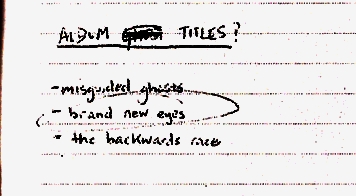 ALBUM TITLES?
- misguided ghosts
- brand new eyes
- the backwards race